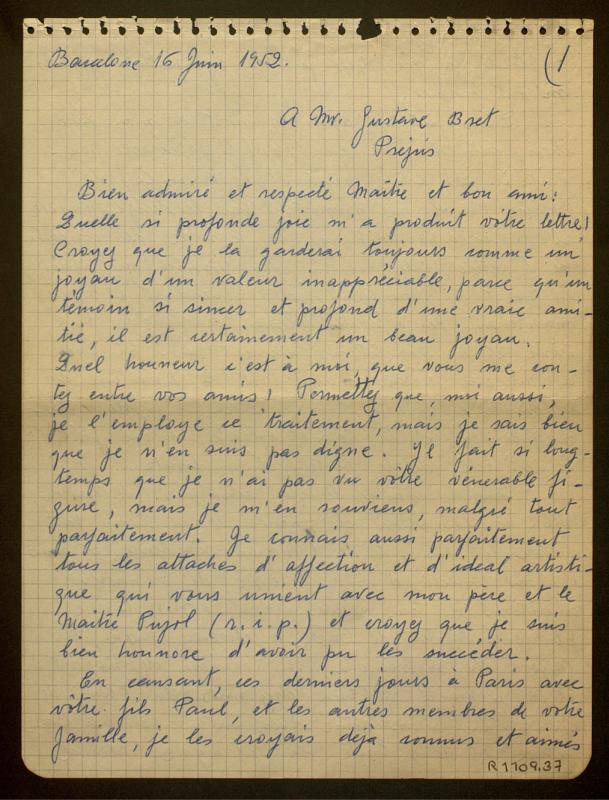 Barcelone 16 Juin 1952.
(1
A Mr. Gustave Bret
Préjus
Bien admiré et respecté Maître et bon ami:
Quelle si profonde joie m'a produit vôtre lettre!
Croyez que je la garderai toujours comme un
joyau d'un valeur inappréciable, parce qu'un
témoin si sincer et profond d'une vraie ami-
tié, il est certainement un beau joyau.
Quel honneur c'est à moi, que vous me con-
tez entre vos amis! Permettez que, moi aussi,
je l'employe ce traitement, mais je sais bien
que je n'en suis pas digne. Il fait si long-
temps que je n'ai pas vu vôtre vénerable fi-
gure, mais je m'en souviens, malgré tout
parfaitement. Je connais aussi parfaitement
tous les attaches d'affection et d'ideal artisti-
que qui vous unient avec mon père et le
Maître Pujol (r.i.p.) et croyez que je suis
bien honnore d'avoir pu les succéder.
En causant, ces derniers jours à Paris avec
vôtre fils Paul, et les autres membres de votre
famille, je les croyais dejà connus et aimés
R 1109.37